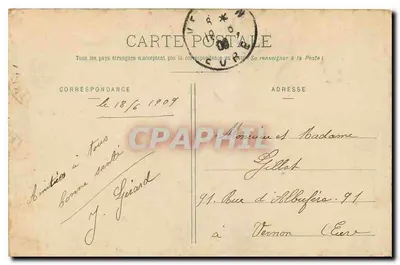 CARTE POSTALE
Tous les pays étrangers n'acceptent pas la correspondance au recto. (Se renseigner à la Poste)
CORRESPONDANCE
ADRESSE
le 18/6 1909
Amitiés à tous
bonne santé
J. Gérard
Monsieur et Madame
Gillot
91 Rue d'Albuféra. 91
à Vernon (Eure)
EURE
CPARAMA